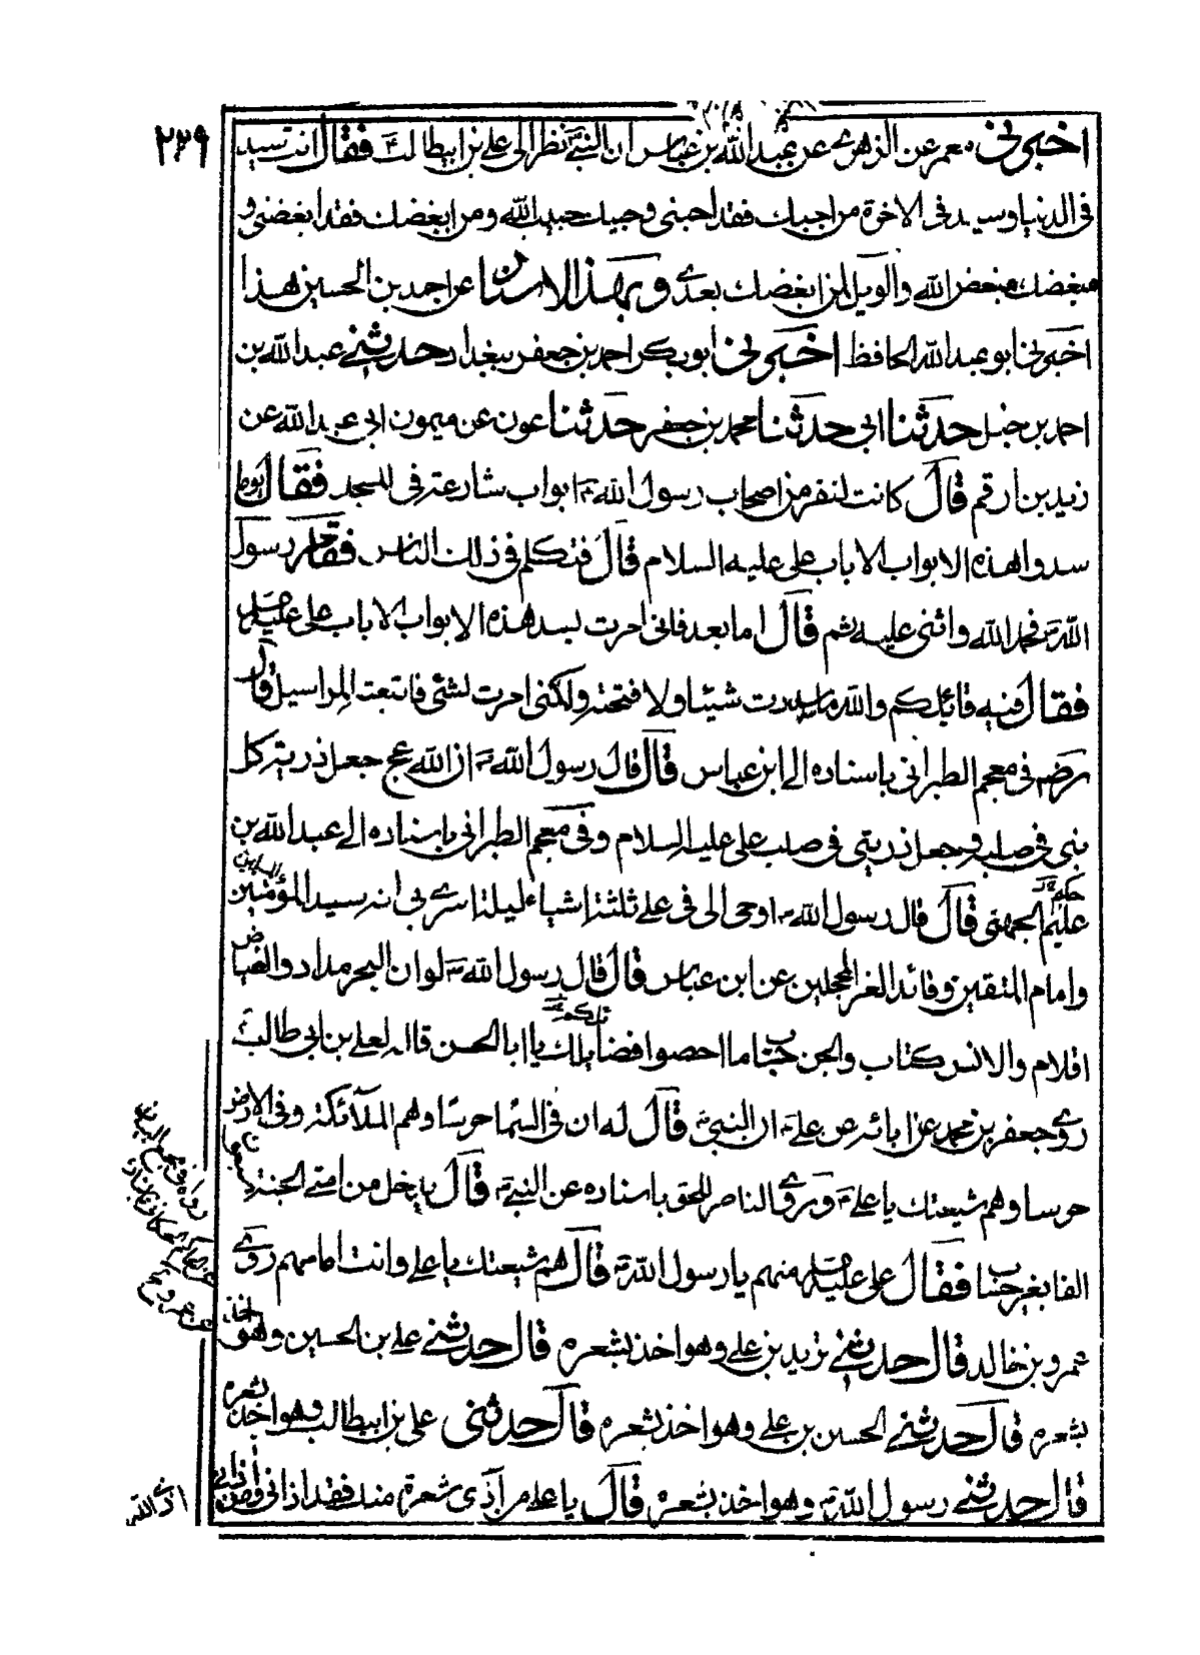 ٢٣٩
اخبرنى معمر عن الزهرى عن عبيد الله بن عباس ان النبى نظر الى على بن ابيطالب فقال انت سيد
فى الدنيا وسيد فى الاخرة من احبك فقد احبنى وحبيبك حبيب الله ومن ابغضك فقد ابغضنى و
مبغضك مبغض الله والويل لمن ابغضك بعدى وبهذا الاسناد عن احمد بن الحسين هذا
اخبرنا ابو عبد الله الحافظ اخبرنى ابو بكر احمد بن جعفر ببغداد حدثنى عبد الله بن
احمد بن حنبل حدثنا ابى حدثنا محمد بن جعفر حدثنا عون عن ميمون ابى عبد الله عن
زيد بن ارقم قال كانت لنفر من اصحاب رسول الله ابواب شارعة فى المسجد فقال يوما
سدوا هذه الابواب الا باب على عليه السلام قال فتكلم فى ذلك الناس فقام رسول
الله فحمد الله واثنى عليه ثم قال اما بعد فانى امرت بسد هذه الابواب الا باب على عليه
فقال فيه قائلكم والله ما سددت شيئا ولا فتحته ولكنى امرت لشئ فاتبعت المراسيل قال
فى معجم الطبرانى باسناده الى ابن عباس قال قال رسول الله ان الله عج جعل ذرية كل
نبى فى صلبه وجعل ذريتى فى صلب على عليه السلام وفى معجم الطبرانى باسناده الى عبد الله بن
عليم الجهنى قال قال رسول الله اوحى الى فى على ثلثة اشياء ليلة اسرى بى انه سيد المؤمنين
وامام المتقين وقائد الغر المحجلين عن ابن عباس قال قال رسول الله لو ان البحر مداد والغياض
اقلام والانس كتاب والجن حساب ما احصوا فضائلك يا ابا الحسن قاله لعلى بن ابى طالب
روى جعفر بن محمد عن ابائه عن على ان النبى قال له ان فى السما حرسا وهم الملآئكة وفى الارض
حرسا وهم شيعتك يا على وروى الناصر للحق باسناده عن النبى قال يدخل من امتى الجنة سبعون
الفا بغير حساب فقال على عليه منهم يا رسول الله قال هم شيعتك يا على وانت امامهم روى
عمرو بن خالد قال حدثنى زيد بن على وهو اخذ بشعره قال حدثنى على بن الحسين وهو اخذ
بشعره قال حدثنى الحسين بن على وهو اخذ بشعره قال حدثنى على بن ابيطالب وهو اخذ بشعره
قال حدثنى رسول الله وهو اخذ بشعره قال يا على من آذى شعرة منك فقد اذانى ومن اذانى
اذى الله